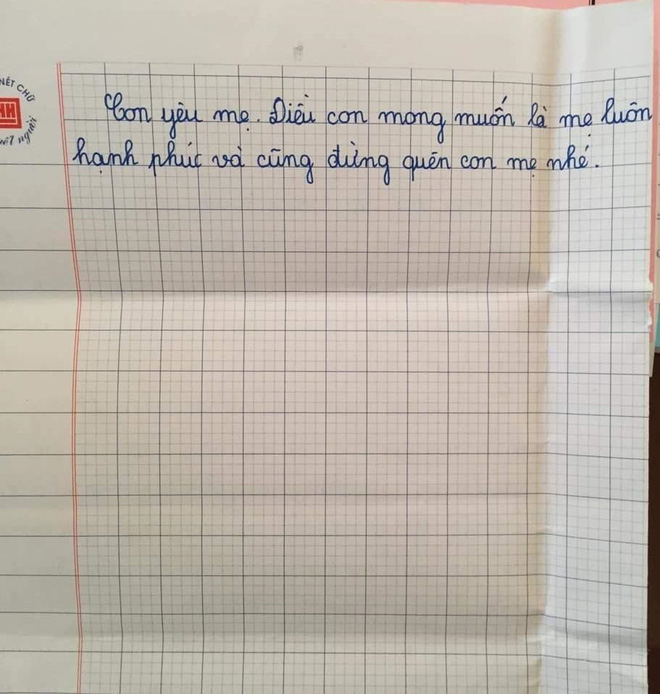 NÉT CHỮ
NẾT NGƯỜI
Con yêu mẹ. Điều con mong muốn là mẹ luôn
hạnh phúc và cũng đừng quên con mẹ nhé.